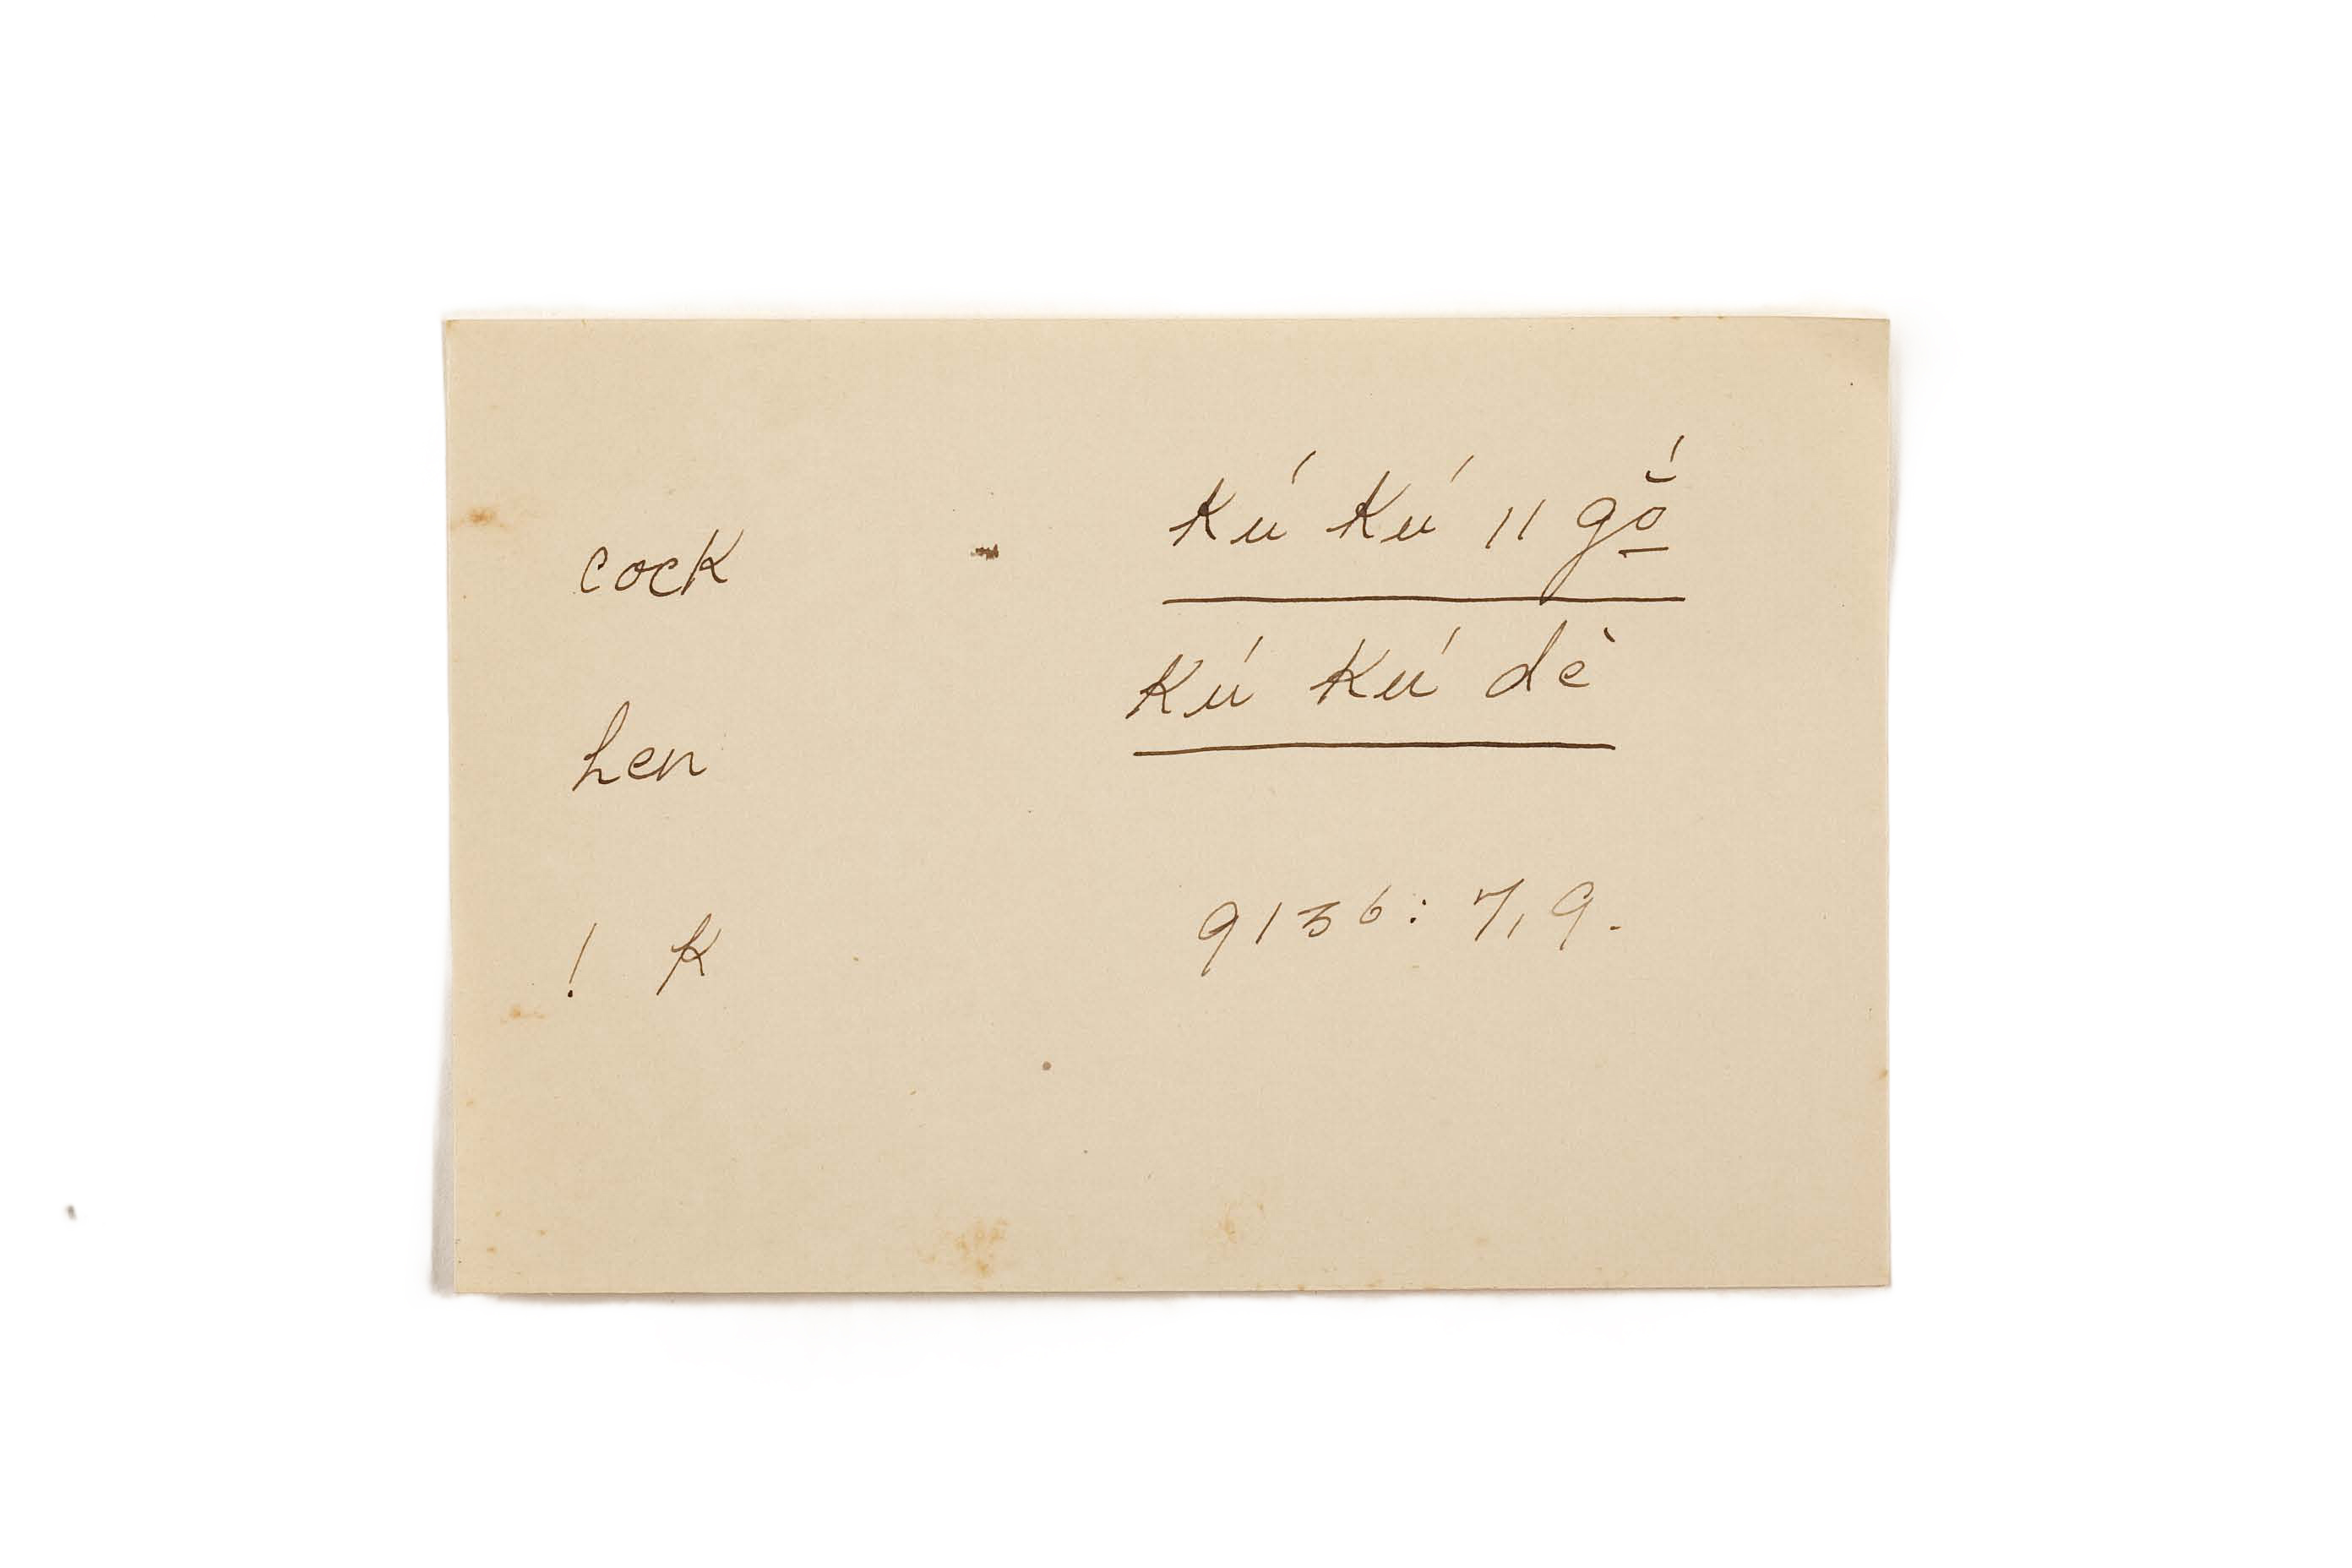 cock Kú Kú ǁ gŏ̱́
hen Kú Kú dè
! K 9136: 7, 9.